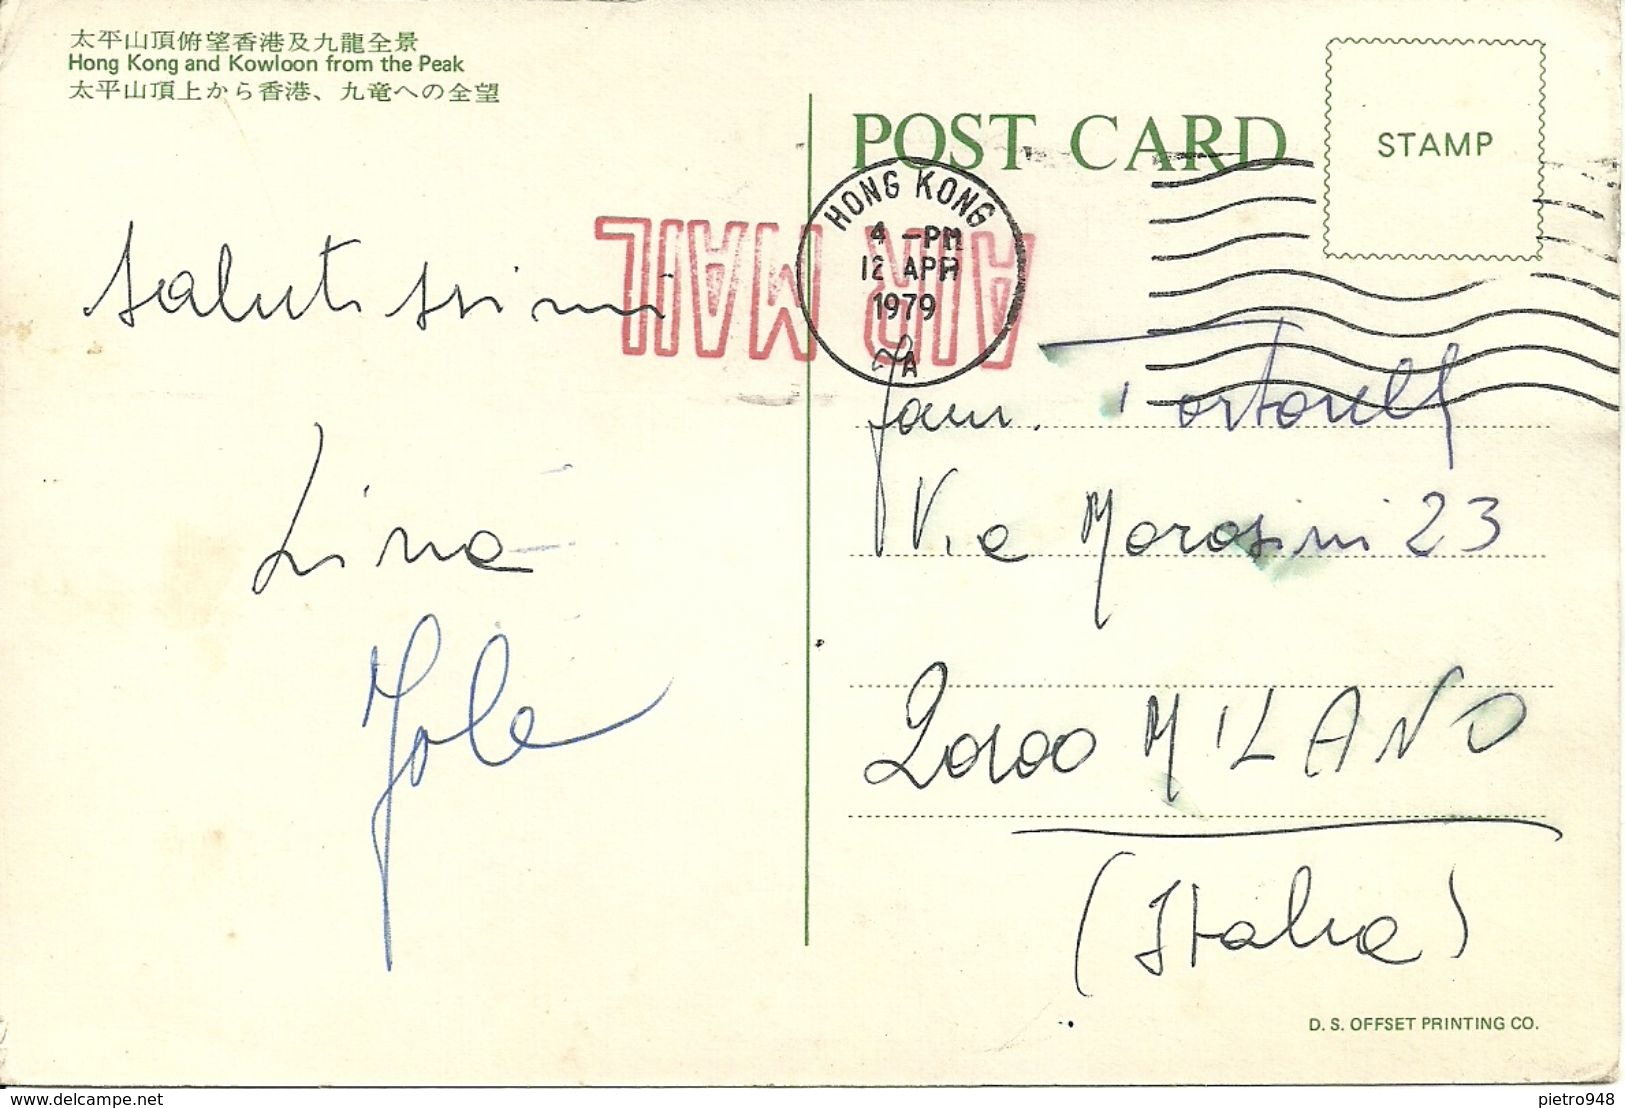 太平山頂俯望香港及九龍全景
Hong Kong and Kowloon from the Peak
太平山頂上から香港、九竜への全望
POST CARD
STAMP
HONG KONG
4 -PM
12 APR
1979
A
AIR MAIL
Salutissimi
Lina
Jole
Fam. Tortorelli
Via Morosini 23
20100 MILANO
(Italia)
D. S. OFFSET PRINTING CO.
www.delcampe.net
pietro948